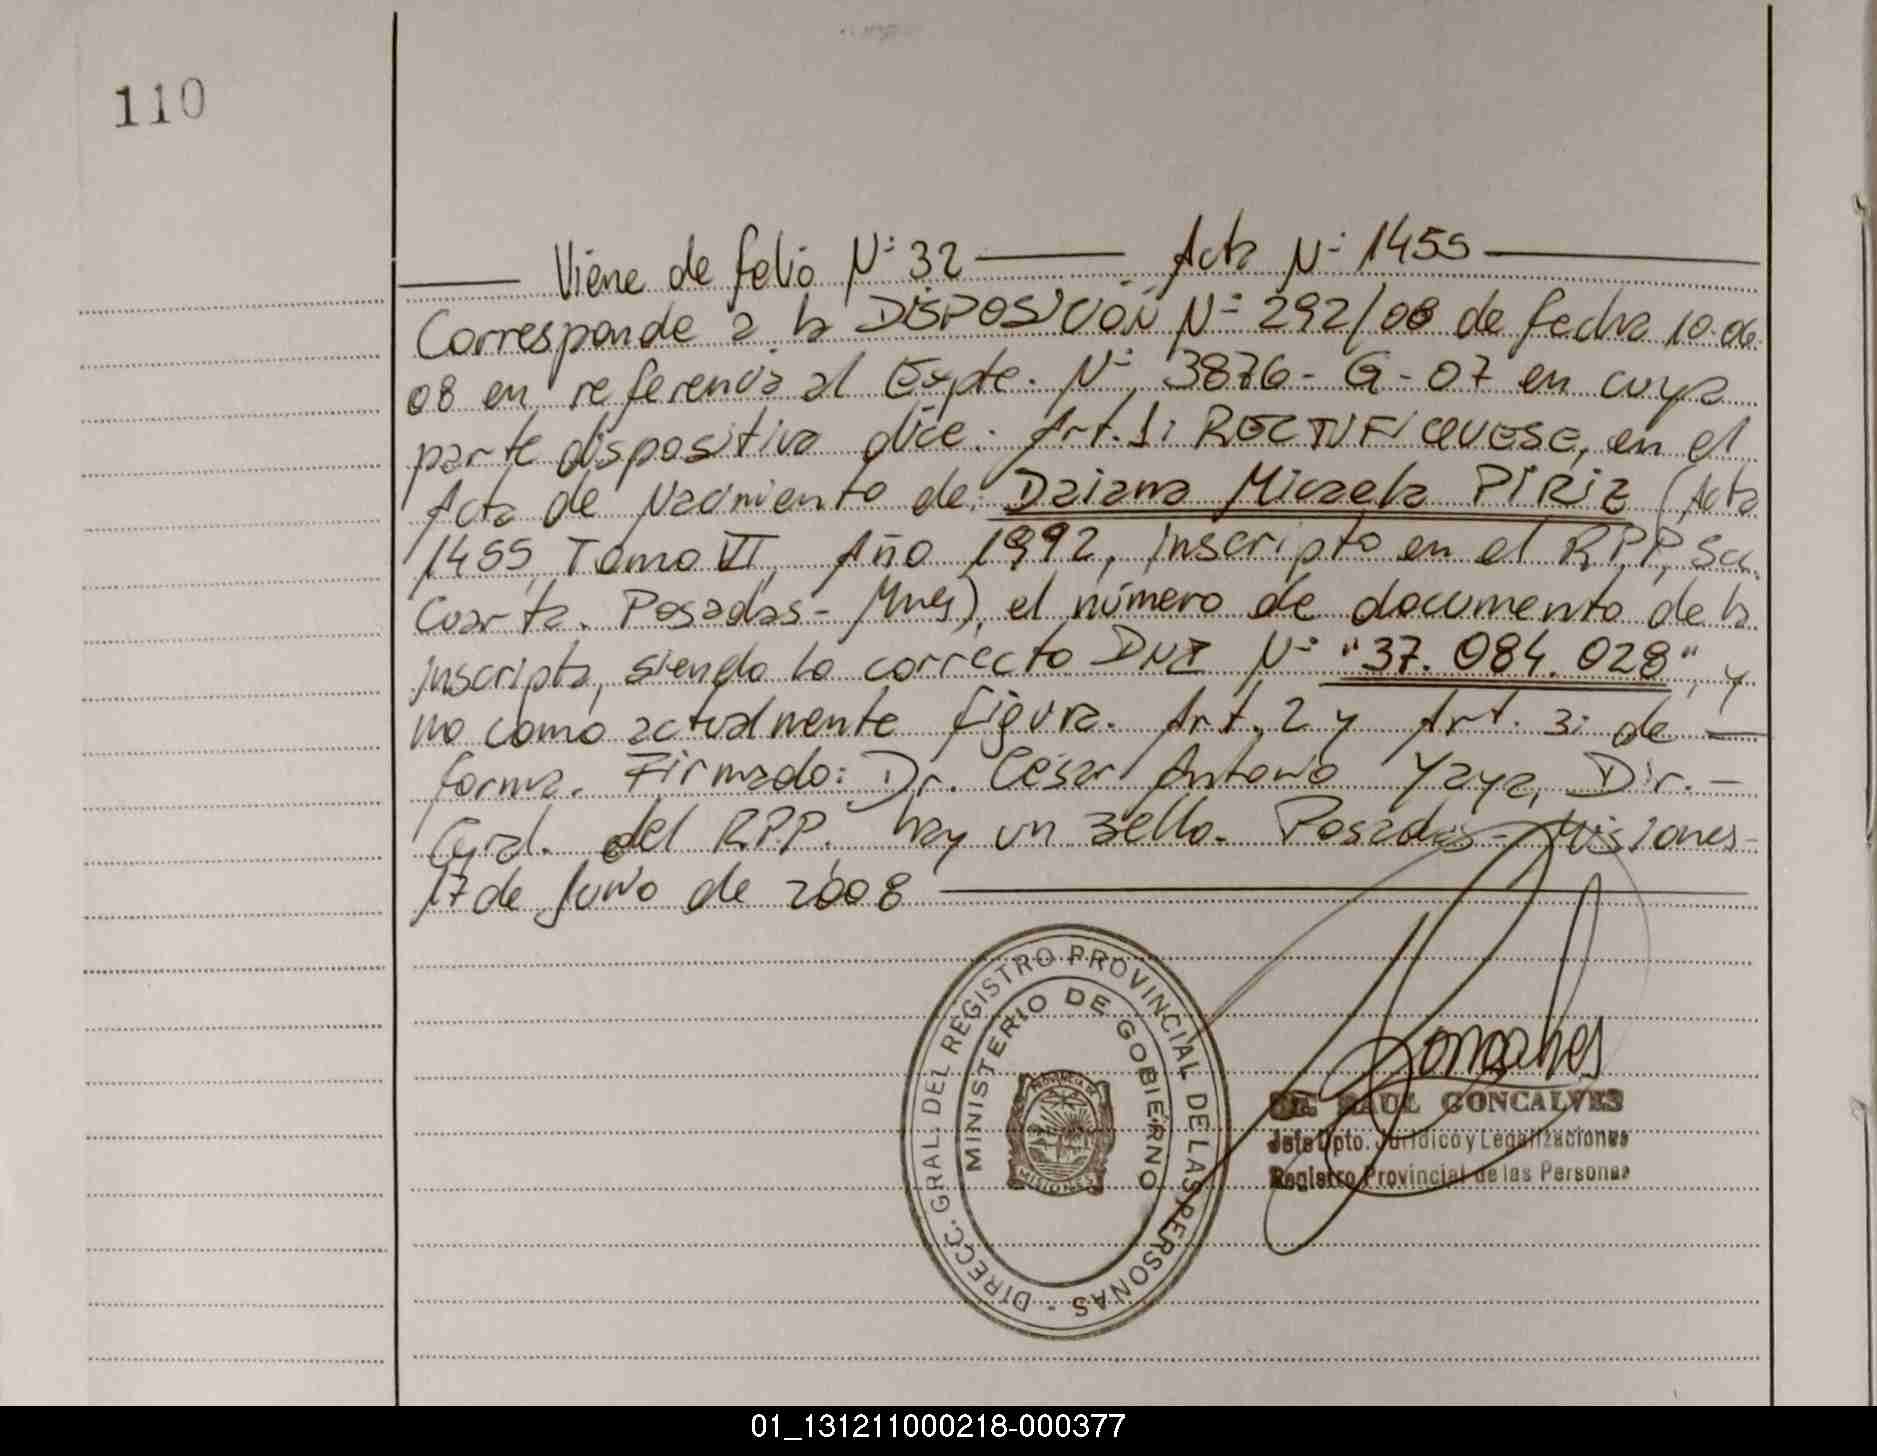 110
Viene de folio Nº 32 — Acta Nº 1455
Corresponde a la DISPOSICIÓN Nº 292/08 de fecha 10-06-
08 en referencia al Expte. Nº 3876-G-07 en cuya
parte dispositiva dice: Art.1: RECTIFIQUESE, en el
Acta de Nacimiento de: Daiana Micaela PIRIZ (Acta
1455, Tomo VI, Año 1992, inscripta en el R.P.P, Sec.
Cuarta. Posadas- Mnes), el número de documento de la
inscripta, siendo lo correcto DNI Nº "37.084.028", y
no como actualmente figura. Art. 2 y Art. 3: de
forma. Firmado: Dr. César Antonio Yaya, Dir.-
Gral. del R.P.P. hay un sello. Posadas- Misiones-
17 de Junio de 2008
DIRECC. GRAL. DEL REGISTRO PROVINCIAL DE LAS PERSONAS -
MINISTERIO DE GOBIERNO
PROVINCIA DE
MISIONES
Goncalves
Dr. RAUL GONCALVES
Jefe Dpto. Jurídico y Legalizaciones
Registro Provincial de las Personas
01_131211000218-000377